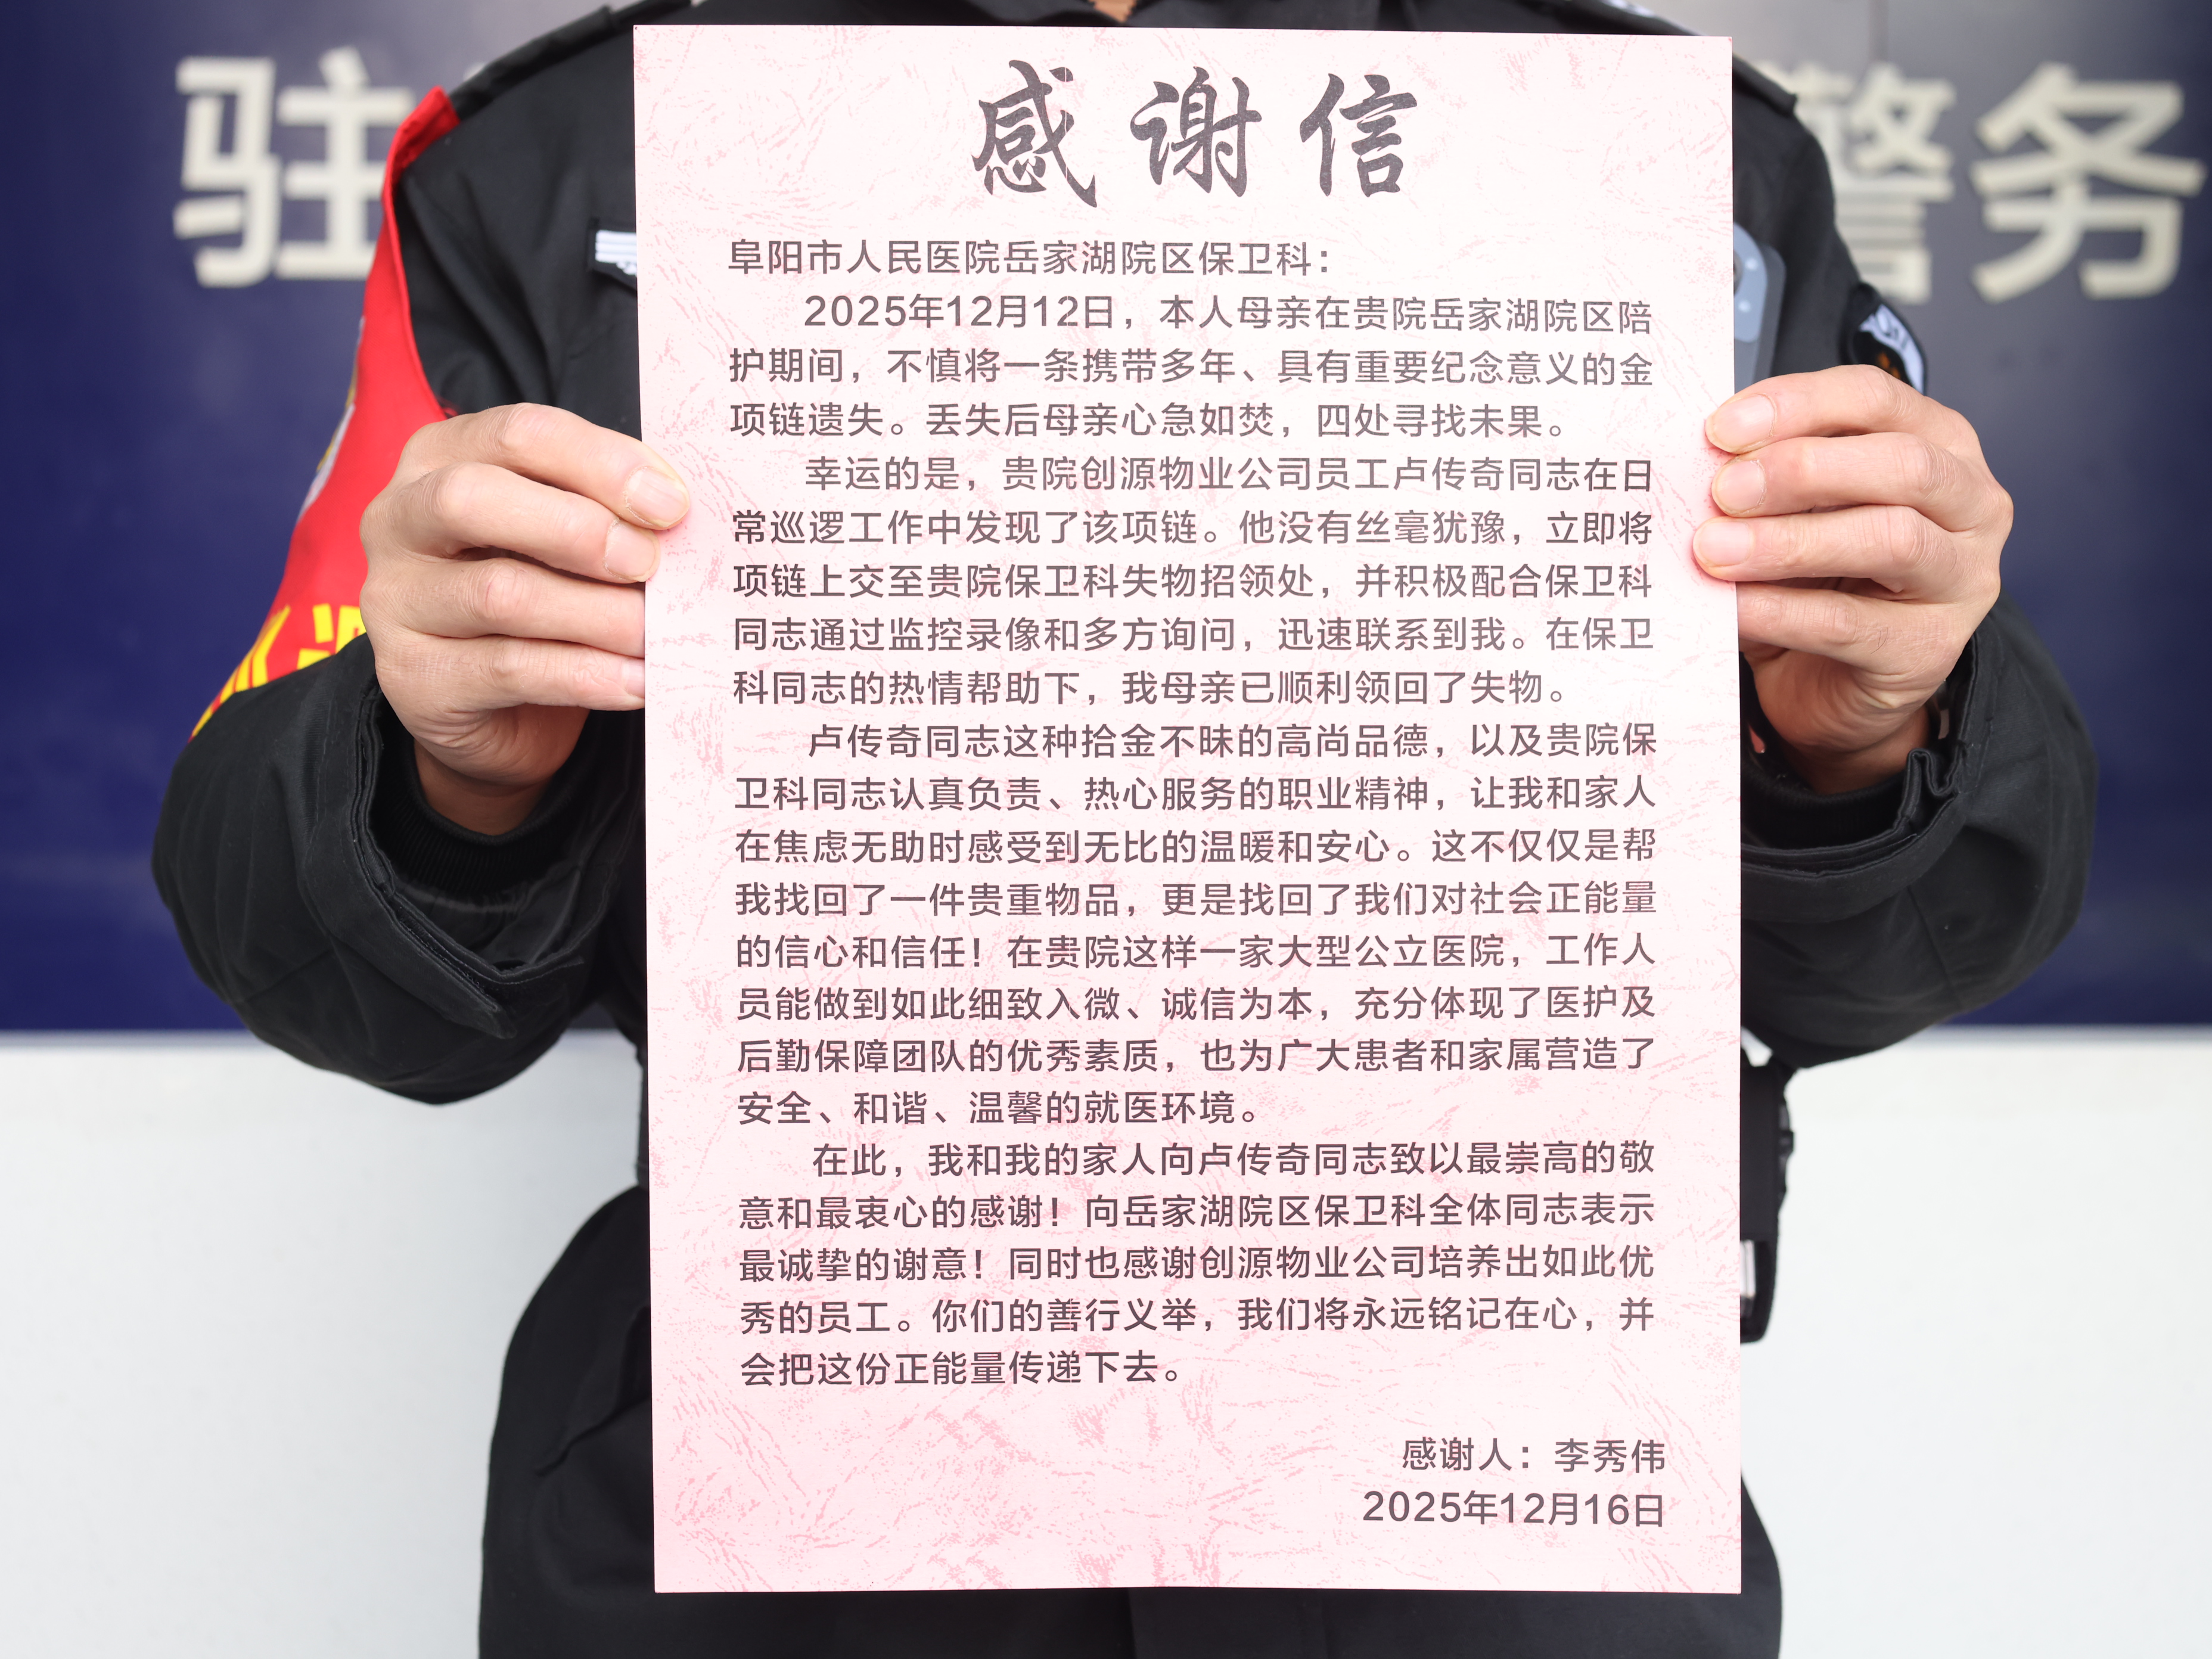 驻 警务
感谢信
阜阳市人民医院岳家湖院区保卫科：
2025年12月12日，本人母亲在贵院岳家湖院区陪
护期间，不慎将一条携带多年、具有重要纪念意义的金
项链遗失。丢失后母亲心急如焚，四处寻找未果。
幸运的是，贵院创源物业公司员工卢传奇同志在日
常巡逻工作中发现了该项链。他没有丝毫犹豫，立即将
项链上交至贵院保卫科失物招领处，并积极配合保卫科
同志通过监控录像和多方询问，迅速联系到我。在保卫
科同志的热情帮助下，我母亲已顺利领回了失物。
卢传奇同志这种拾金不昧的高尚品德，以及贵院保
卫科同志认真负责、热心服务的职业精神，让我和家人
在焦虑无助时感受到无比的温暖和安心。这不仅仅是帮
我找回了一件贵重物品，更是找回了我们对社会正能量
的信心和信任！在贵院这样一家大型公立医院，工作人
员能做到如此细致入微、诚信为本，充分体现了医护及
后勤保障团队的优秀素质，也为广大患者和家属营造了
安全、和谐、温馨的就医环境。
在此，我和我的家人向卢传奇同志致以最崇高的敬
意和最衷心的感谢！向岳家湖院区保卫科全体同志表示
最诚挚的谢意！同时也感谢创源物业公司培养出如此优
秀的员工。你们的善行义举，我们将永远铭记在心，并
会把这份正能量传递下去。
感谢人：李秀伟
2025年12月16日